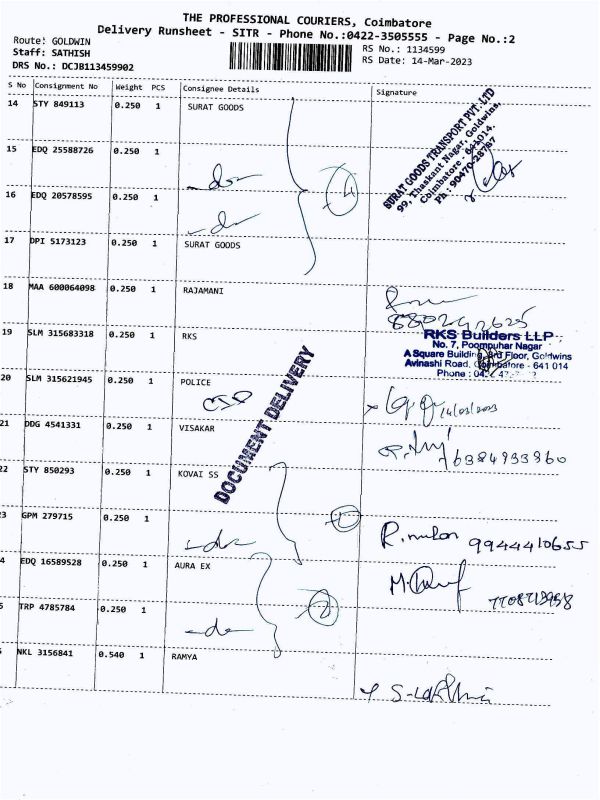 THE PROFESSIONAL COURIERS, Coimbatore
Delivery Runsheet - SITR - Phone No.:0422-3505555 - Page No.:2
Route: GOLDWIN
Staff: SATHISH
DRS No.: DCJB113459902
RS No.: 1134599
RS Date: 14-Mar-2023
S No Consignment No Weight PCS Consignee Details Signature
14 STY 849113 0.250 1 SURAT GOODS
SURAT GOODS TRANSPORT PVT.LTD
99, Thaskant Nagar, Goldwins,
Coimbatore - 641014.
Ph : 90470-28787
15 EDQ 25588726 0.250 1
-do-
4
16 EDQ 20578595 0.250 1
-do-
17 DPI 5173123 0.250 1 SURAT GOODS
18 MAA 600064098 0.250 1 RAJAMANI
8802492625
19 SLM 315683318 0.250 1 RKS
RKS Builders LLP
No. 7, Poompuhar Nagar
A Square Building, 3rd Floor, Goldwins
Avinashi Road, Coimbatore - 641 014
Phone :
DOCUMENT DELIVERY
20 SLM 315621945 0.250 1 POLICE
14/03/2023
21 DDG 4541331 0.250 1 VISAKAR
6384933860
22 STY 850293 0.250 1 KOVAI SS
23 GPM 279715 0.250 1
-do-
9944410655
4 EDQ 16589528 0.250 1 AURA EX
5 TRP 4785784 0.250 1
-do-
2
NKL 3156841 0.540 1 RAMYA